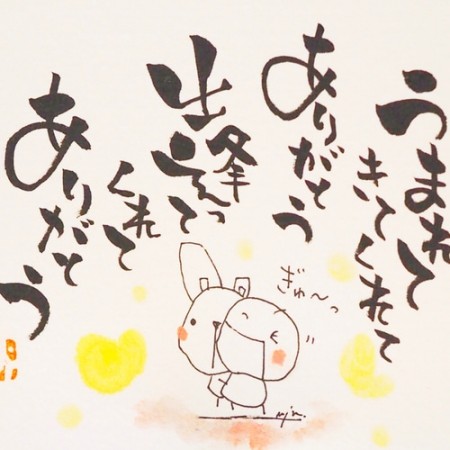 うまれて
きてくれて
ありがとう
出逢って
くれて
ありがとう
ぎゅ〜っ